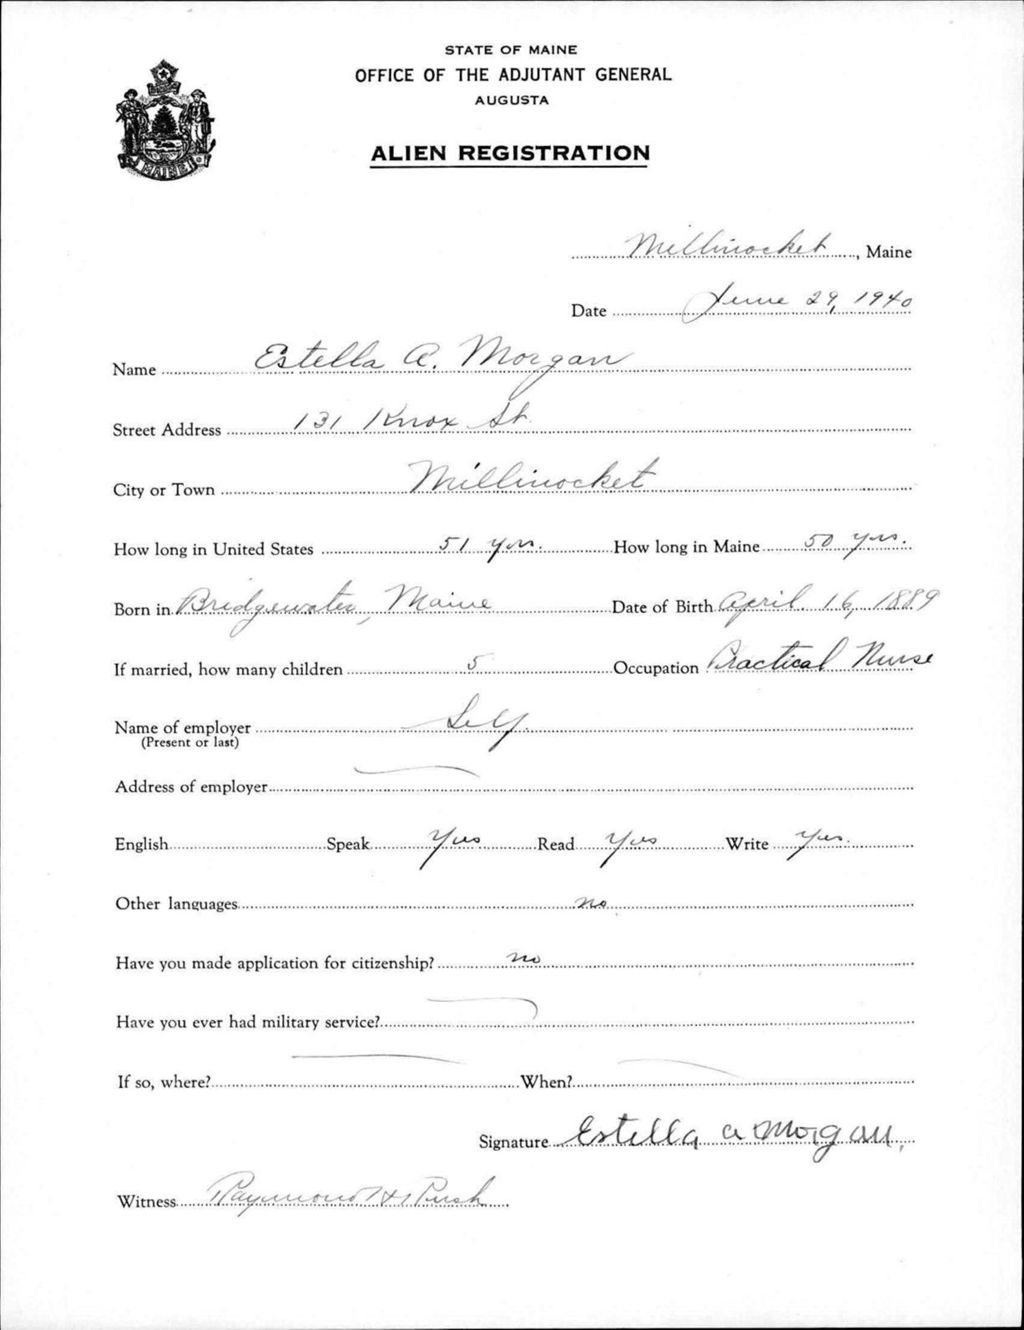 STATE OF MAINE
OFFICE OF THE ADJUTANT GENERAL
AUGUSTA
ALIEN REGISTRATION
MAINE
Millinocket, Maine
Date June 29, 1940
Name Estella A. Morgan
Street Address 131 Knox St.
City or Town Millinocket
How long in United States 51 yrs. How long in Maine 50 yrs.
Born in Bridgewater, Maine Date of Birth April 16, 1889
If married, how many children 5 Occupation Practical Nurse
Name of employer Self
(Present or last)
Address of employer
English Speak Yes Read Yes Write Yes.
Other languages no
Have you made application for citizenship? no
Have you ever had military service?
If so, where? When?
Signature Estella A Morgan.
Witness Raymond H